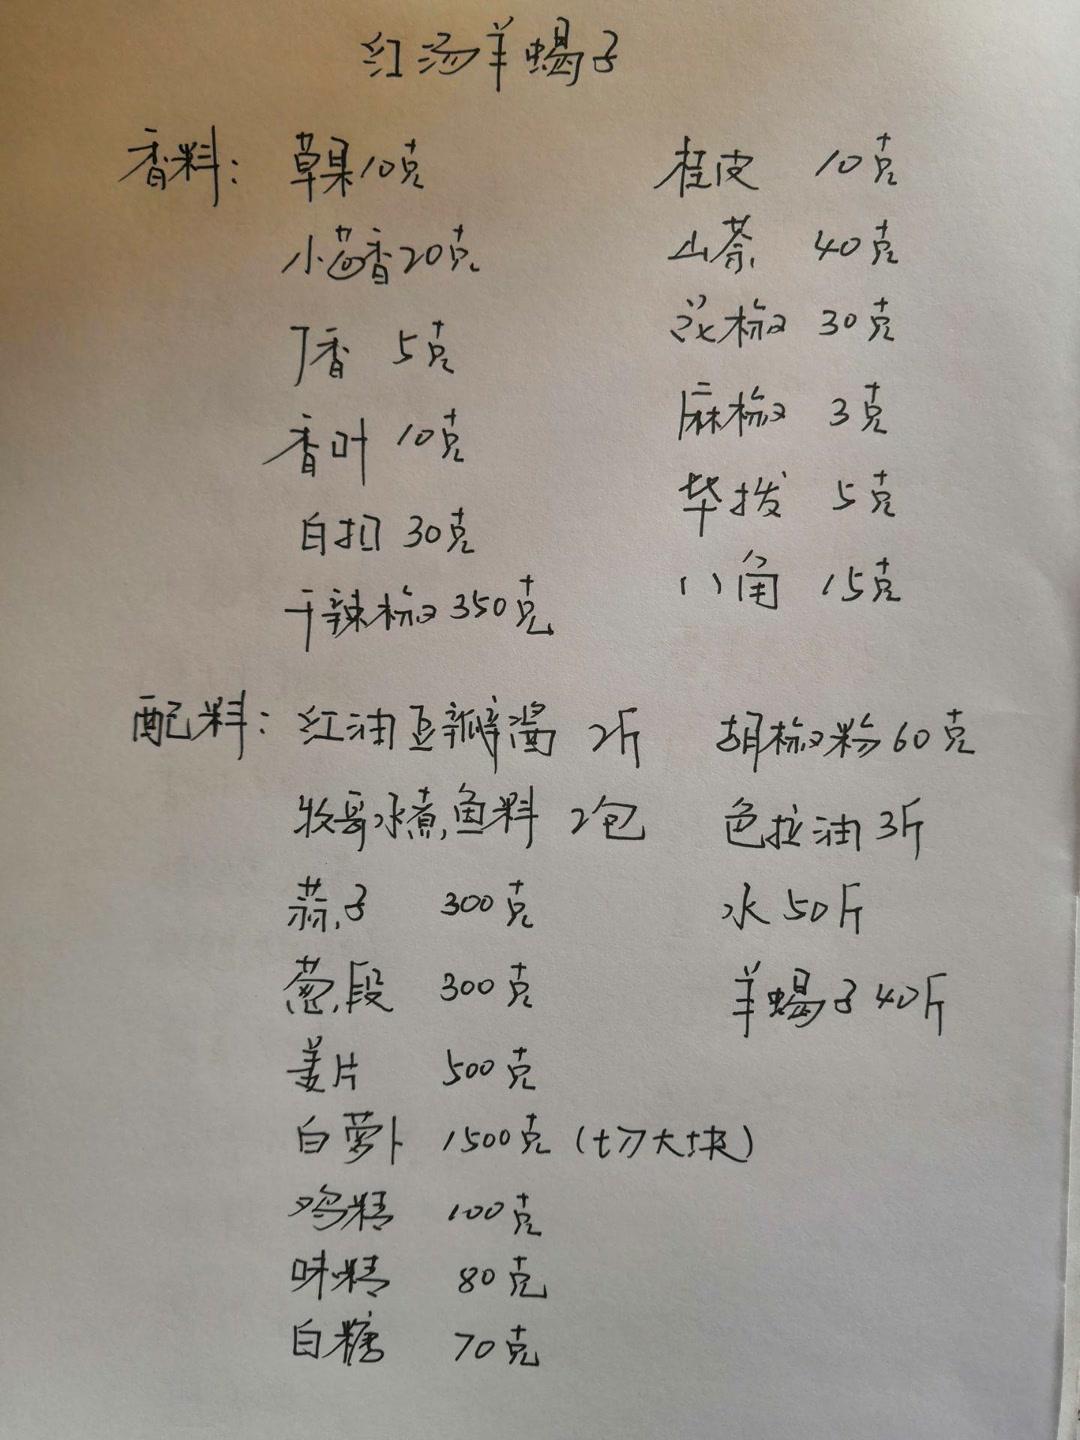 红汤羊蝎子
香料: 草果10克 桂皮 10克
小茴香20克 山奈 40克
丁香 5克 花椒 30克
香叶 10克 麻椒 3克
白扣 30克 荜拨 5克
干辣椒350克 八角 15克
配料: 红油豆瓣酱 2斤 胡椒粉60克
牧哥水煮鱼料 2包 色拉油3斤
蒜子 300克 水50斤
葱段 300克 羊蝎子40斤
姜片 500克
白萝卜 1500克(切大块)
鸡精 100克
味精 80克
白糖 70克